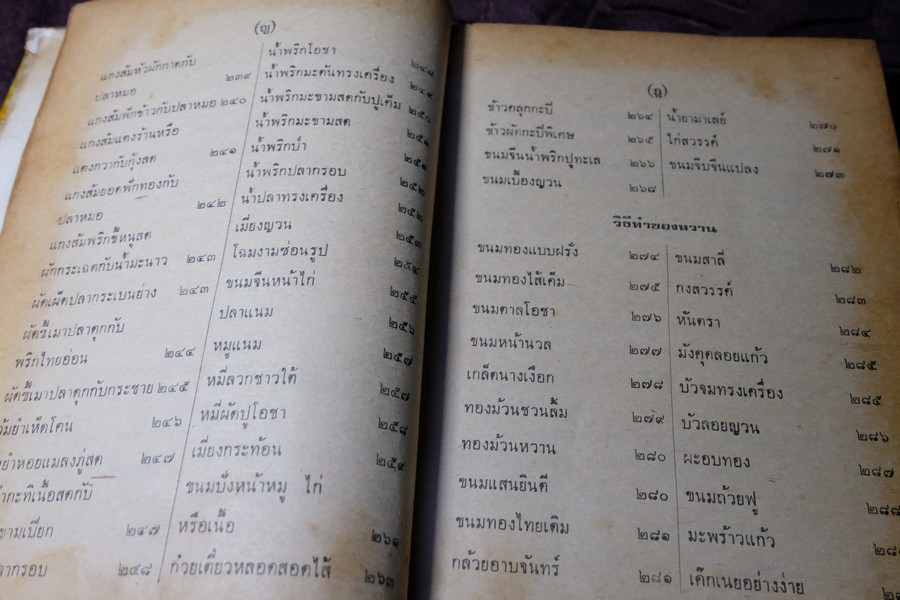 (ญ)
แกงส้มหัวผักกาดกับ
ปลาหมอ ๒๓๙
แกงส้มผักข้าวกับปลาหมอ ๒๔๐
แกงส้มแตงร้านหรือ
แตงกวากับกุ้งสด ๒๔๑
แกงส้มยอดฟักทองกับ
ปลาหมอ ๒๔๒
แกงส้มพริกขี้หนูสด
ผักกระเฉดกับน้ำมะนาว ๒๔๓
ผัดเผ็ดปลากระเบนย่าง ๒๔๓
ผัดขี้เมาปลาดุกกับ
พริกไทยอ่อน ๒๔๔
ผัดขี้เมาปลาดุกกับกระชาย ๒๔๕
ต้มยำเห็ดโคน ๒๔๖
ยำหอยแมลงภู่สด ๒๔๗
กะทิเนื้อสดกับ
ขามเปียก ๒๔๗
ลากรอบ ๒๔๘
น้ำพริกโอชา ๒๔๘
น้ำพริกมะดันทรงเครื่อง ๒๔๙
น้ำพริกมะขามสดกับปูเค็ม ๒๕๐
น้ำพริกมะขามสด ๒๕๑
น้ำพริกป่า ๒๕๑
น้ำพริกปลากรอบ ๒๕๒
น้ำปลาทรงเครื่อง ๒๕๒
เมี่ยงญวน ๒๕๓
โฉมงามซ่อนรูป ๒๕๔
ขนมจีนหน้าไก่ ๒๕๕
ปลาแนม ๒๕๖
หมูแนม ๒๕๗
หมี่ลวกชาวใต้ ๒๕๗
หมี่ผัดปูโอชา ๒๕๘
เมี่ยงกระท้อน ๒๕๙
ขนมปังหน้าหมู ไก่
หรือเนื้อ ๒๖๑
ก๋วยเตี๋ยวหลอดสอดไส้ ๒๖๓
ข้าวคลุกกะปิ ๒๖๔
ข้าวผัดกะปิพิเศษ ๒๖๕
ขนมจีนน้ำพริกปูทะเล ๒๖๖
ขนมเบื้องญวน ๒๖๘
น้ำยามาเลย์ ๒๗๐
ไก่สวรรค์ ๒๗๑
ขนมจีบจีนแปลง ๒๗๓
วิธีทำของหวาน
ขนมทองแบบฝรั่ง ๒๗๔
ขนมทองไส้เค็ม ๒๗๕
ขนมตาลโอชา ๒๗๖
ขนมหน้านวล ๒๗๗
เกล็ดนางเงือก ๒๗๘
ทองม้วนชวนลิ้ม ๒๗๙
ทองม้วนหวาน ๒๘๐
ขนมแสนยินดี ๒๘๐
ขนมทองไทยเดิม ๒๘๑
กล้วยอาบจันทร์ ๒๘๑
ขนมสาลี่ ๒๘๒
กงสวรรค์ ๒๘๓
หันตรา ๒๘๔
มังคุดลอยแก้ว ๒๘๕
บัวจมทรงเครื่อง ๒๘๕
บัวลอยญวน ๒๘๖
ผะอบทอง ๒๘๗
ขนมถ้วยฟู
มะพร้าวแก้ว
เค๊กเนยอย่างง่าย